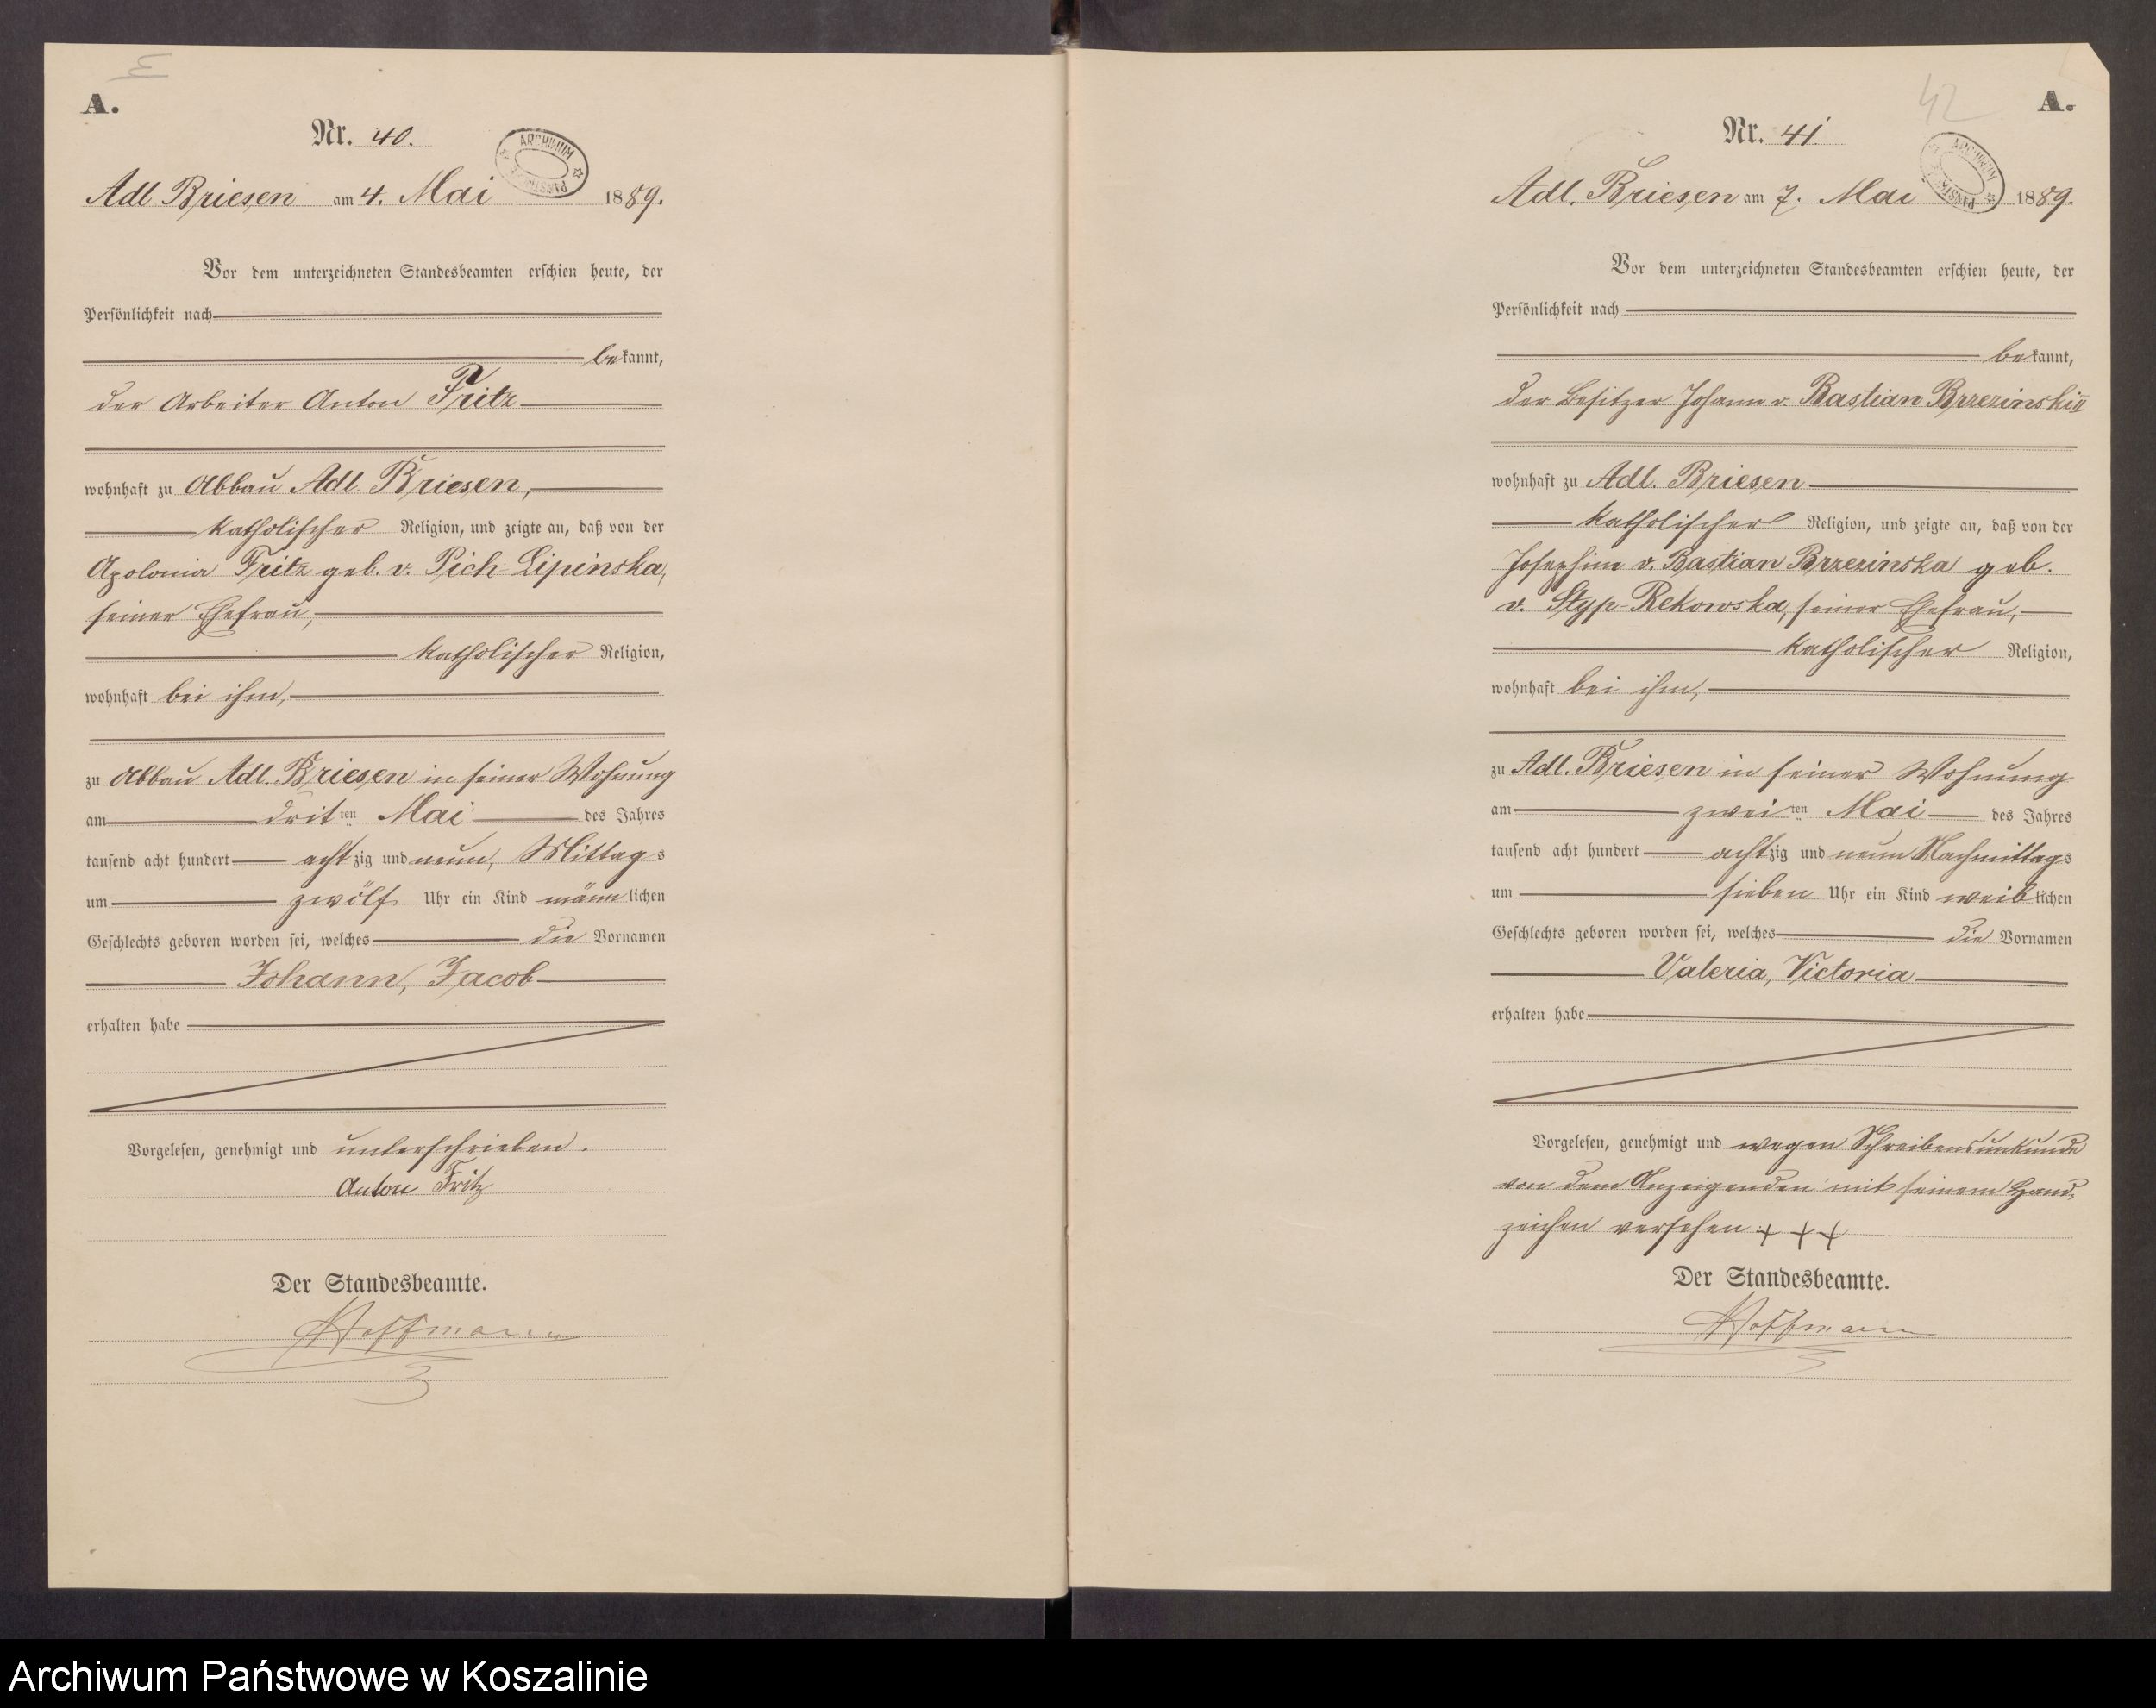 A.
Nr. 40.
ARCHIWUM
Adl. Briesen am 4. Mai 1889.
Vor dem unterzeichneten Standesbeamten erschien heute, der
Persönlichkeit nach
bekannt,
der Arbeiter Anton Fritz
wohnhaft zu Abbau Adl. Briesen,
katholischer Religion, und zeigte an, daß von der
Apolonia Fritz geb. v. Pich-Lipinska,
seiner Ehefrau,
katholischer Religion,
wohnhaft bei ihm,
zu Abbau Adl. Briesen in seiner Wohnung
am dritten Mai des Jahres
tausend acht hundert achtzig und neun, Mittags
um zwölf Uhr ein Kind männlichen
Geschlechts geboren worden sei, welches die Vornamen
Johann, Jacob
erhalten habe
Vorgelesen, genehmigt und unterschrieben.
Anton Fritz
Der Standesbeamte.
Hoffmann
42
A.
Nr. 41.
ARCHIWUM
Adl. Briesen am 7. Mai 1889.
Vor dem unterzeichneten Standesbeamten erschien heute, der
Persönlichkeit nach
bekannt,
der Besitzer Johann v. Bastian Brzezinski II
wohnhaft zu Adl. Briesen
katholischer Religion, und zeigte an, daß von der
Josephine v. Bastian Brzezinska geb.
v. Styp-Rekowska, seiner Ehefrau,
katholischer Religion,
wohnhaft bei ihm,
zu Adl. Briesen in seiner Wohnung
am zweiten Mai des Jahres
tausend acht hundert achtzig und neun Nachmittags
um sieben Uhr ein Kind weiblichen
Geschlechts geboren worden sei, welches die Vornamen
Valeria, Victoria
erhalten habe
Vorgelesen, genehmigt und wegen Schreibensunkunde
von dem Anzeigenden mit seinem Hand-
zeichen versehen + + +
Der Standesbeamte.
Hoffmann
Archiwum Państwowe w Koszalinie